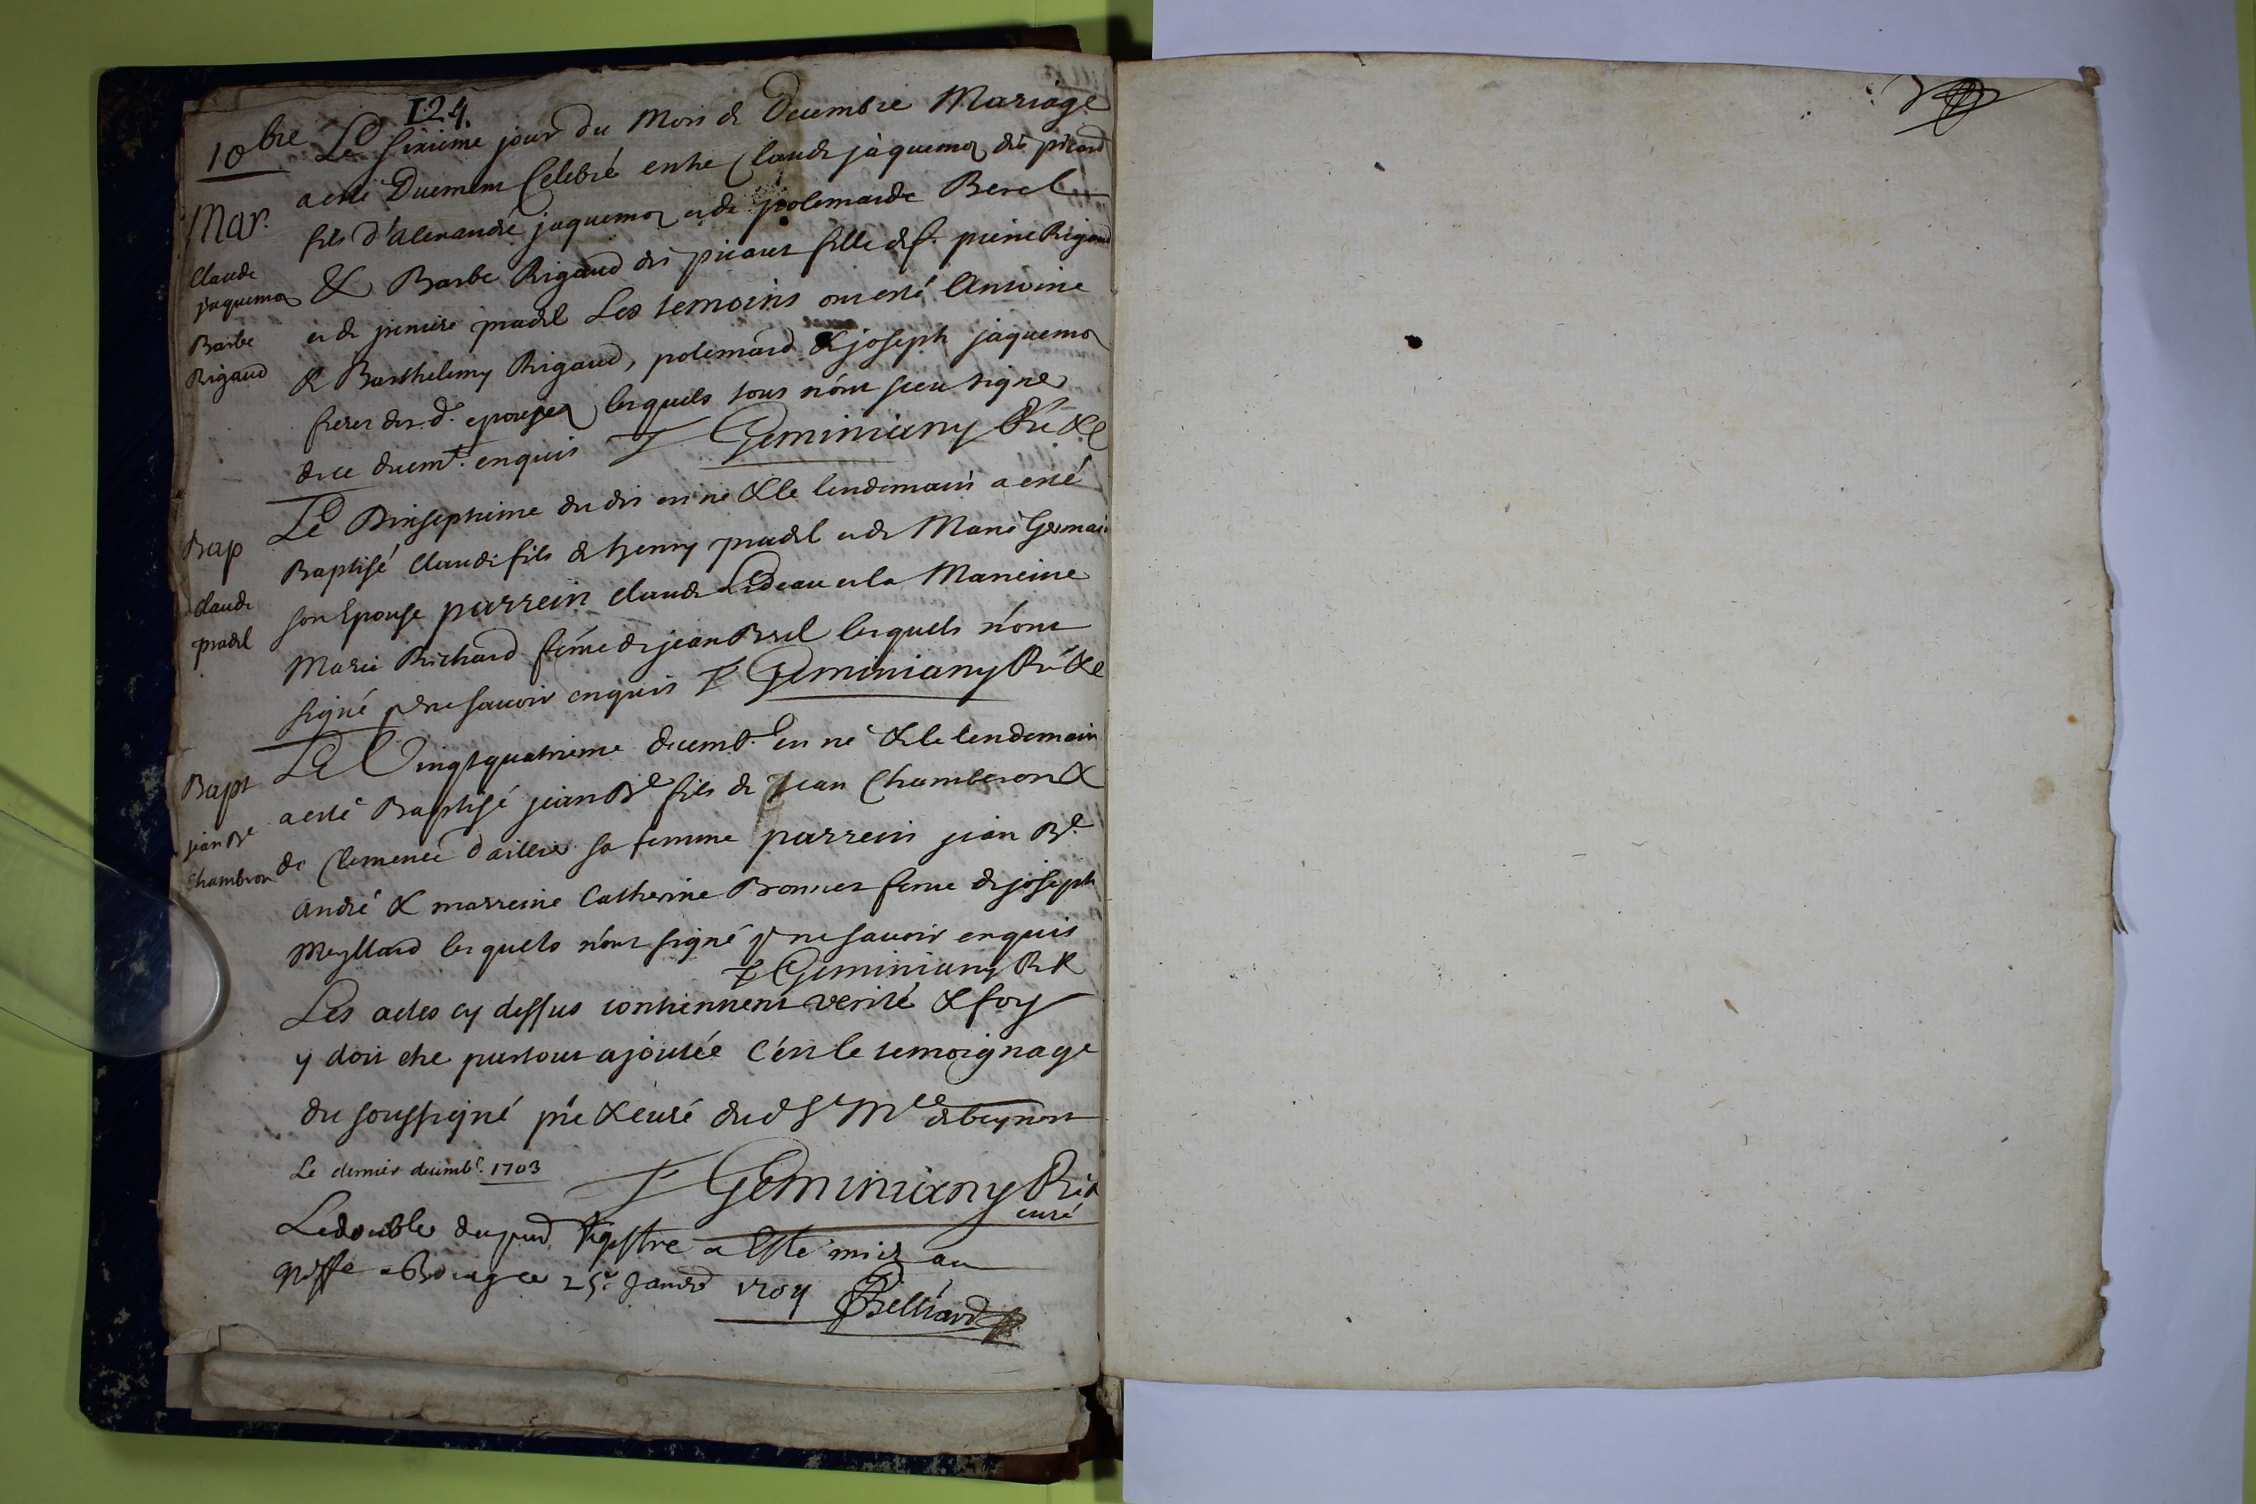 124
10bre Le sixieme jour du Mois de Decembre Mariage
Mar. a esté Duement Celebré entre Claude jaquemoz dit picard
fils d'alexandre jaquemoz et de polemarde Berel
Claude
jaquemoz
& Barbe Rigaud dit picaut fille de f. pierre Rigaud
Barbe
Rigaud
et de pierrere pradel Les temoins ont esté Antoine
& Barthelemy Rigaud, polemard & joseph jaquemoz
freres des d. epousez lesquels tous n'ont sceu signer
de ce duemt. enquis F Geminiany Pre &c
Bap
Le Dixseptieme du dit est né & le lendemain a esté
Baptisé Claude fils de henry pradel et de Marie Germain
claude
pradel
son Epouse parrein claude et la Marreine
Marie Richard féme de jean Brel lesquels n'ont
signé pr ne savoir enquis F Geminiany Pre &c
Bapt
Le Vingtquatrieme decemb. est né & le lendemain
jean Bte
chambron
a esté Baptisé jean Bte fils de Jean Chamberon &
de Clemence daillier sa femme parrein jean Bte
andré & marreine Catherine Bonnet feme de joseph
Meyllard lesquels n'ont signé pr ne savoir enquis
F Geminiany
Les actes cy dessus contiennent verité & foy
y doit etre partout ajoutée c'est le temoignage
du soussigné pre & curé dud St Mce de beynost
Le dernier decemb. 1703
F Geminiany Pre &
curé
Le double du pnt Registre a Esté mis au
greffe a Bourg ce 25e Janvr 1704